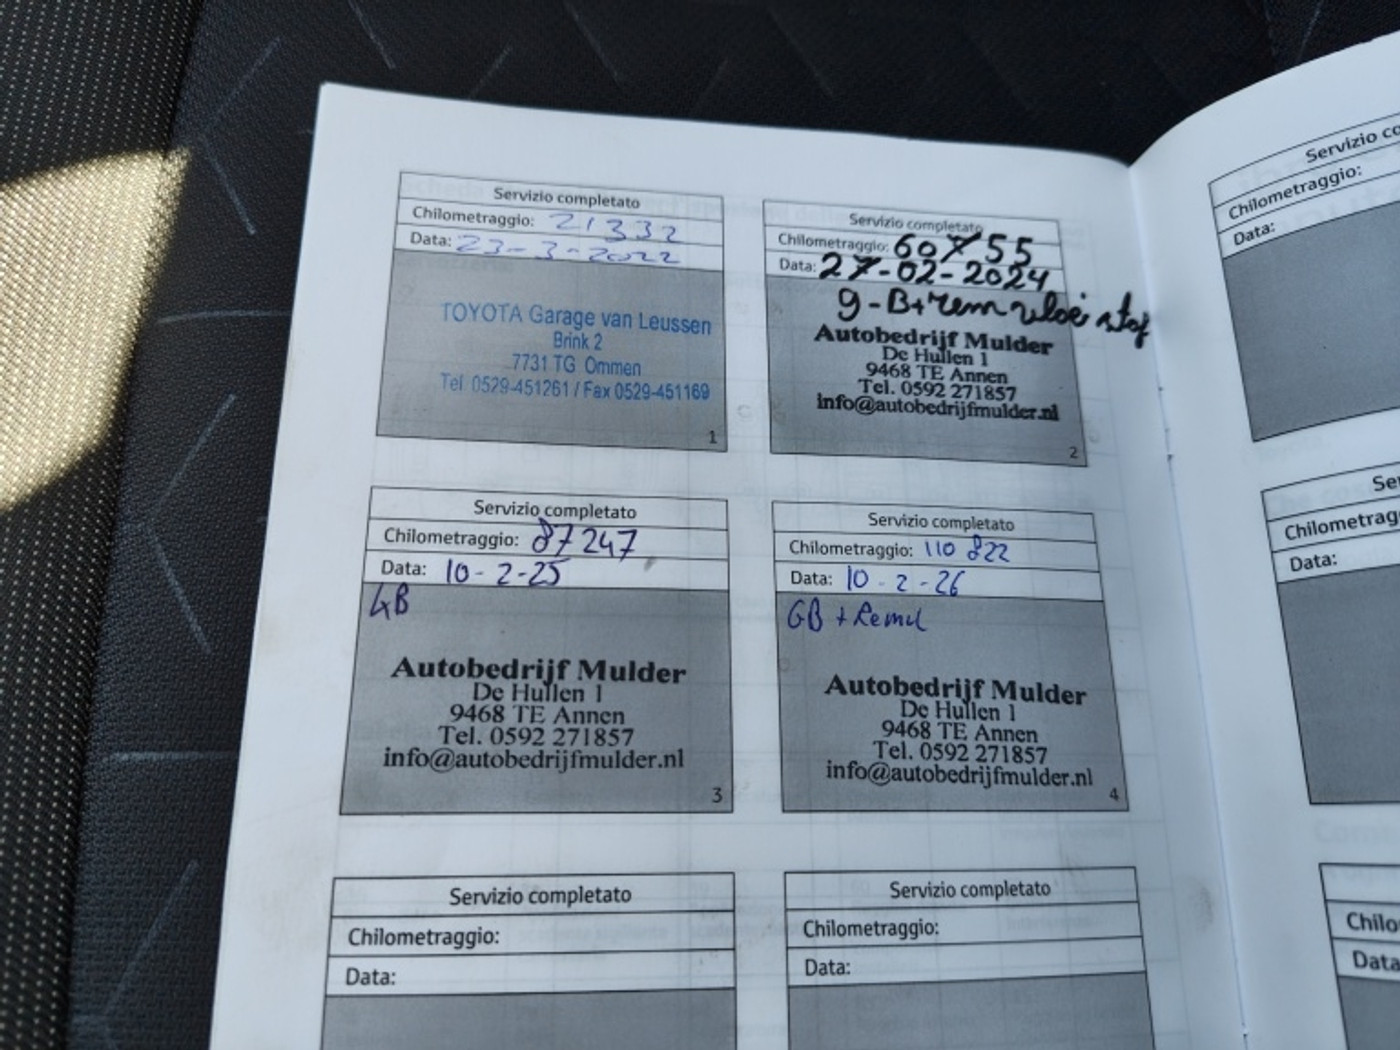 Servizio completato
Chilometraggio: 21332
Data: 23-3-2022
TOYOTA Garage van Leussen
Brink 2
7731 TG Ommen
Tel. 0529-451261 / Fax 0529-451169
1
Servizio completato
Chilometraggio: 60755
Data: 27-02-2024
g-B+rem vloeistof
Autobedrijf Mulder
De Hullen 1
9468 TE Annen
Tel. 0592 271857
info@autobedrijfmulder.nl
2
Servizio completato
Chilometraggio: 87247
Data: 10-2-25
GB
Autobedrijf Mulder
De Hullen 1
9468 TE Annen
Tel. 0592 271857
info@autobedrijfmulder.nl
3
Servizio completato
Chilometraggio: 110 822
Data: 10-2-26
GB + Remvl
Autobedrijf Mulder
De Hullen 1
9468 TE Annen
Tel. 0592 271857
info@autobedrijfmulder.nl
4
Servizio completato
Chilometraggio:
Data:
Servizio completato
Chilometraggio:
Data:
Servizio co
Chilometraggio:
Data:
Se
Chilometrag
Data:
Chilo
Data